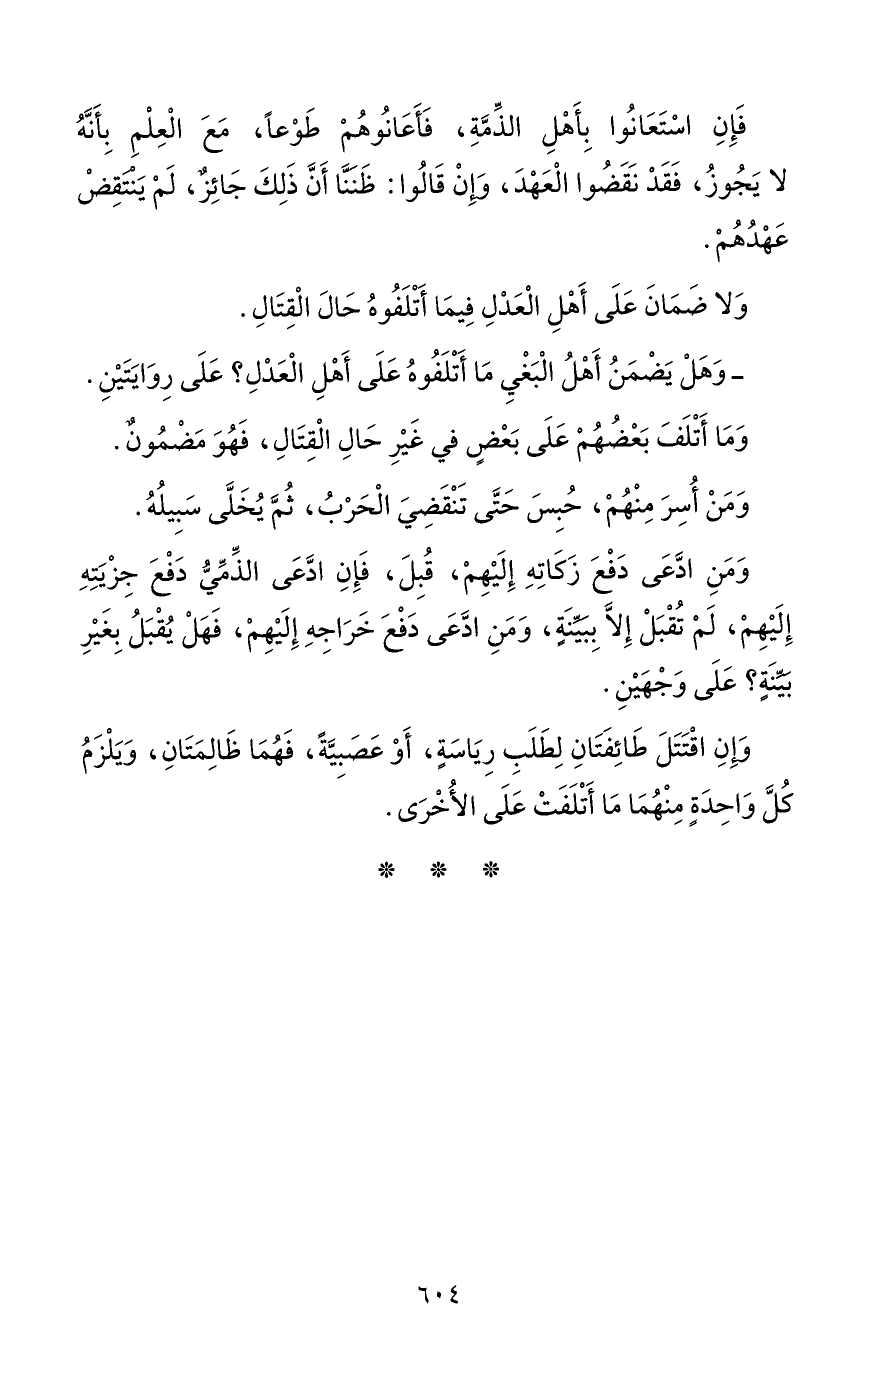 فَإِنِ اسْتَعَانُوا بِأَهْلِ الذِّمَّةِ، فَأَعَانُوهُمْ طَوْعاً، مَعَ الْعِلْمِ بِأَنَّهُ
لا يَجُوزُ، فَقَدْ نَقَضُوا الْعَهْدَ، وَإِنْ قَالُوا: ظَنَنَّا أَنَّ ذَلِكَ جَائِزٌ، لَمْ يَنْتَقِضْ
عَهْدُهُمْ.
وَلا ضَمَانَ عَلَى أَهْلِ الْعَدْلِ فِيمَا أَتْلَفُوهُ حَالَ الْقِتَالِ.
ـ وَهَلْ يَضْمَنُ أَهْلُ الْبَغْيِ مَا أَتْلَفُوهُ عَلَى أَهْلِ الْعَدْلِ؟ عَلَى رِوَايَتَيْنِ.
وَمَا أَتْلَفَ بَعْضُهُمْ عَلَى بَعْضٍ في غَيْرِ حَالِ الْقِتَالِ، فَهُوَ مَضْمُونٌ.
وَمَنْ أُسِرَ مِنْهُمْ، حُبِسَ حَتَّى تَنْقَضِيَ الْحَرْبُ، ثُمَّ يُخَلَّى سَبِيلُهُ.
وَمَنِ ادَّعَى دَفْعَ زَكَاتِهِ إِلَيْهِمْ، قُبِلَ، فَإِنِ ادَّعَى الذِّمِّيُّ دَفْعَ جِزْيَتِهِ
إِلَيْهِمْ، لَمْ تُقْبَلْ إِلاَّ بِبَيِّنَةٍ، وَمَنِ ادَّعَى دَفْعَ خَرَاجِهِ إِلَيْهِمْ، فَهَلْ يُقْبَلُ بِغَيْرِ
بَيِّنَةٍ؟ عَلَى وَجْهَيْنِ.
وَإِنِ اقْتَتَلَ طَائِفَتَانِ لِطَلَبِ رِيَاسَةٍ، أَوْ عَصَبِيَّةً، فَهُمَا ظَالِمَتَانِ، وَيَلْزَمُ
كُلَّ وَاحِدَةٍ مِنْهُمَا مَا أَتْلَفَتْ عَلَى الأُخْرَى.
* * *
٦٠٤